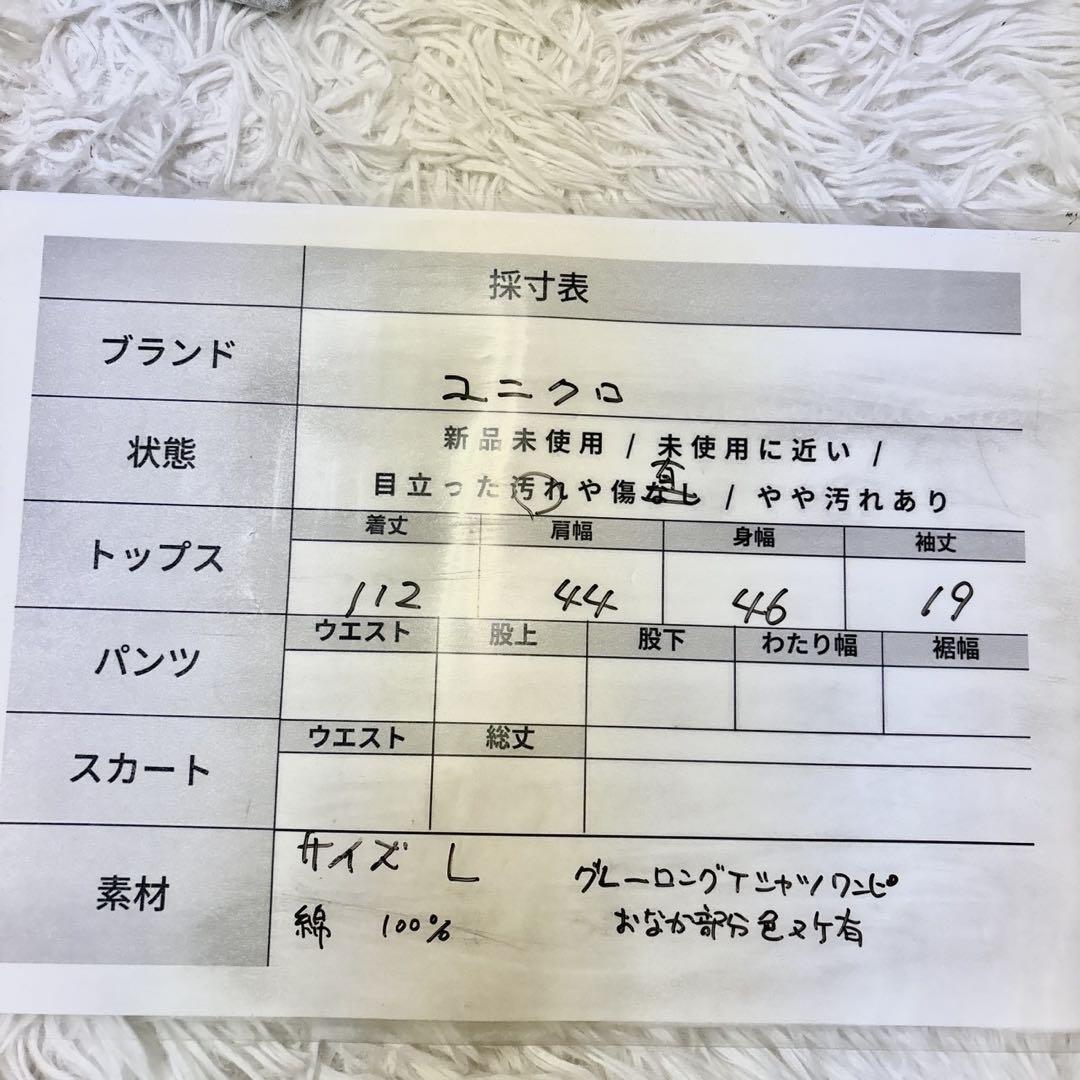 採寸表
ブランド
ユニクロ
状態
新品未使用 / 未使用に近い /
目立った汚れや傷なし / やや汚れあり
有
トップス
着丈 肩幅 身幅 袖丈
112 44 46 19
パンツ
ウエスト 股上 股下 わたり幅 裾幅
スカート
ウエスト 総丈
素材
サイズ L
綿 100%
グレーロングTシャツワンピ
おなか部分色ヌケ有